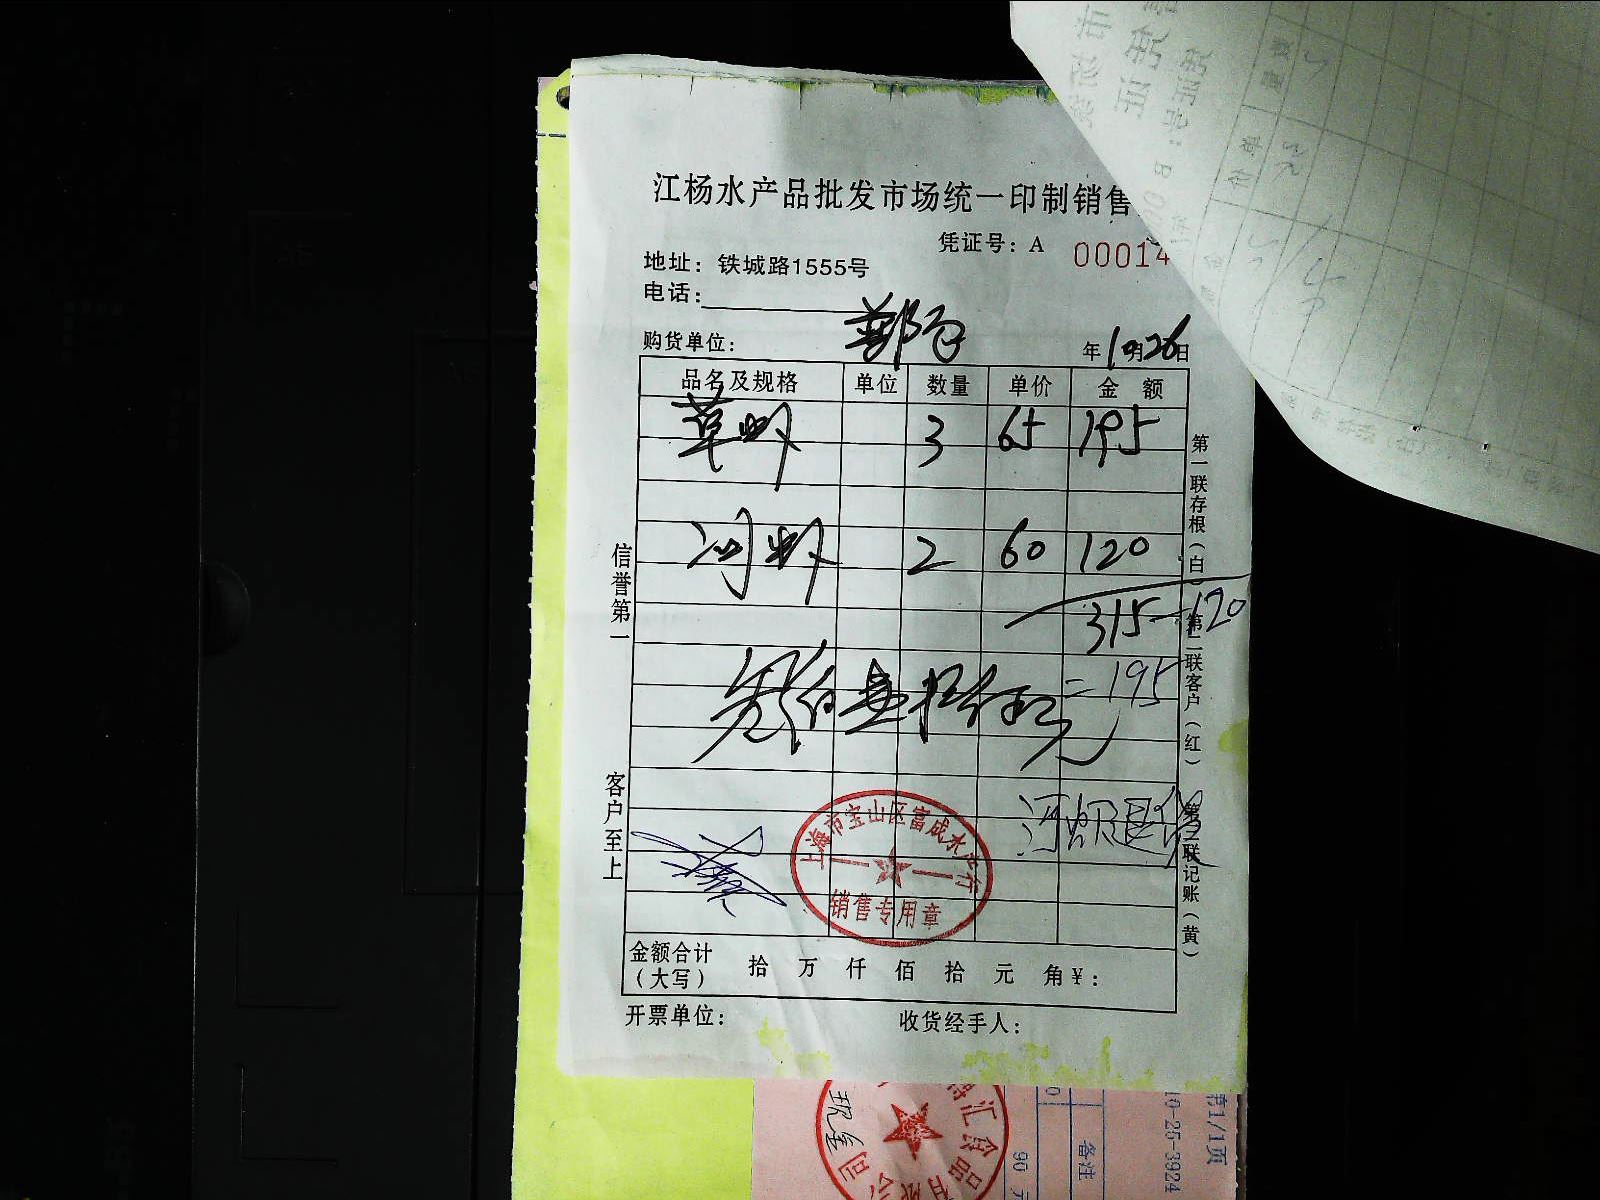 江杨水产品批发市场统一印制销售
凭证号：A 00014
地址：铁城路1555号
电话：
购货单位：
年10月26日
品名及规格 单位 数量 单价 金 额
草虾 3 65 195
河虾 2 60 120
315-120
=195
叁佰壹拾伍元
河虾退货
上海市宝山区富成水产行
销售专用章
信誉第一
客户至上
第一联存根（白） 第二联客户（红） 第三联记账（黄）
金额合计
（大写） 拾 万 仟 佰 拾 元 角 ¥：
开票单位： 收货经手人：
现金
博汇食品有限公司
备注
90 元
10-25-3924
第1/1页